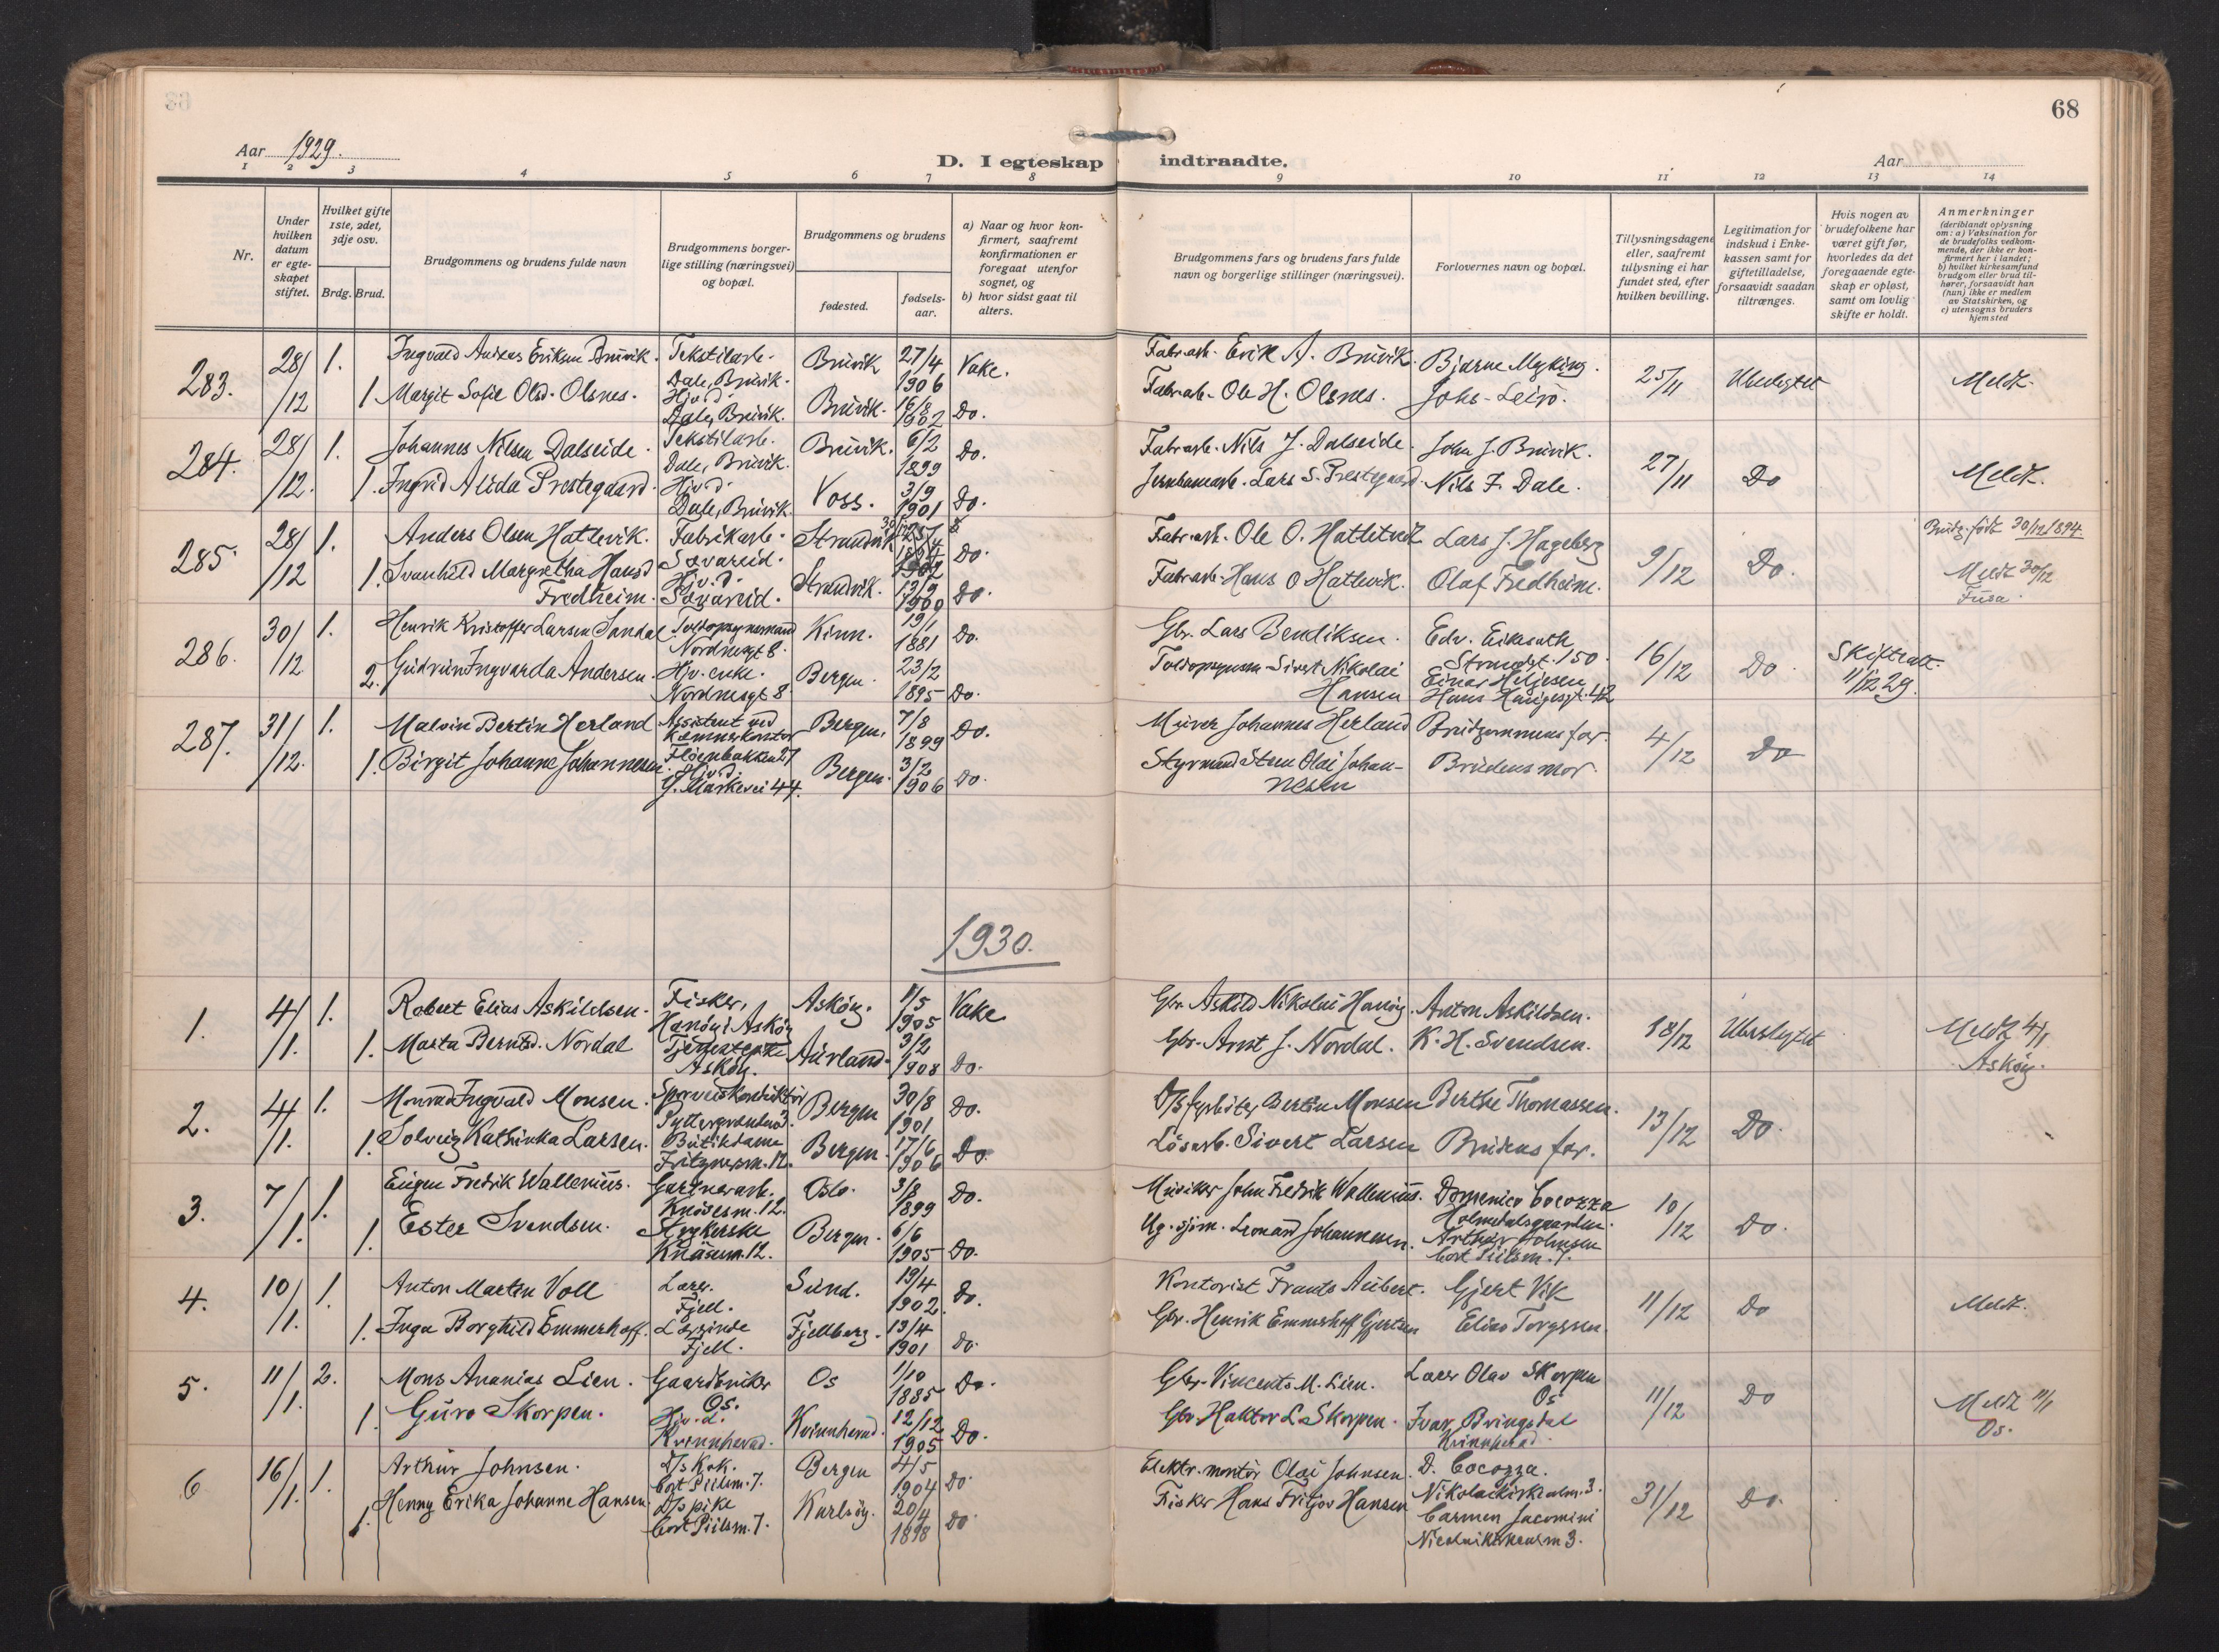 68
Aar 1929.
D. I egteskap indtraadte.
Aar
1 2 3 4 5 6 7 8 9 10 11 12 13 14
Nr.
Under hvilken datum er egteskapet stiftet.
Hvilket gifte 1ste, 2det, 3dje osv.
Brdg. Brud.
Brudgommens og brudens fulde navn
Brudgommens borgerlige stilling (næringsvei) og bopæl.
Brudgommens og brudens
fødested.
fødselsaar.
a) Naar og hvor konfirmert, saafremt konfirmationen er foregaat utenfor sognet, og
b) hvor sidst gaat til alters.
Brudgommens fars og brudens fars fulde navn og borgerlige stillinger (næringsvei).
Forlovernes navn og bopæl.
Tillysningsdagene eller, saafremt tillysning ei har fundet sted, efter hvilken bevilling.
Legitimation for indskud i Enkekassen samt for giftetilladelse, forsaavidt saadan tiltrænges.
Hvis nogen av brudefolkene har været gift før, hvorledes da det foregaaende egteskap er opløst, samt om lovlig skifte er holdt.
Anmerkninger (deriblandt oplysning om: a) Vaksination for de brudefolks vedkommende, der ikke er konfirmert her i landet; b) hvilket kirkesamfund brudgom eller brud tilhører, forsaavidt han (hun) ikke er medlem av Statskirken, og c) utensogns bruders hjemsted
283. 28/12 1. Ingvald Andreas Eriksen Bruvik. Tekstilarb. Dale, Bruvik. Bruvik 27/4 1906 Vake. Fabr.arb. Erik A. Bruvik. Bjarne Myking. 25/11 Ubeslegtet Meldt.
1 Margit Sofie Olsd. Olsnes. Hjv.d. Dale, Bruvik. Bruvik. 1902 Do. Fabr.arb. Ole H. Olsnes. Johs. Leirö.
284. 28/12. 1. Johannes Nilsen Dalseide. Tekstilarb. Dale, Bruvik. Bruvik. 6/2 1899 Do. Fabr.arb. Nils J. Dalseide. John J. Bruvik. 27/11 Do Meldt.
1. Ingrid Alida Prestegaard. Hjv.d. Dale, Bruvik. Voss. 3/9 1901 Do. Jernbanearb. Lars S. Prestegaard. Nils J. Dale.
285. 28/12 1. Anders Olsen Hatlevik. Fabrikarb. Sævareid. Strandvik Do. Fabr.arb. Ole O. Hatletvedt Lars J. Hageberg 9/12 Do. Brudg. födt 30/12 1894.
1. Svanhild Margretha Hansd Fredheim. Hjv.d. Sævareid. Strandvik. 13/9 Do. Fabr.arb. Hans O Hatlevik. Olaf Fredheim. Meldt 30/12 Fusa.
286. 30/12 1. Henrik Kristoffer Larsen Sandal Toldopsynsmand Nordnesgt 8. Kinn. 19/1 1881 Do. Gbr. Lars Bendiksen. Edv. Strandgt. 150. 16/12 Do. Skifteatt. 11/12 29.
2. Gudrun Ingvarda Andersen. Hjv. enke. Nordnesgt 8 Bergen. 23/2 1895 Do. Toldopsynsm. Sivert Nikolai Hansen Einar Heljesen Hans Haugesgt. 42
287. 31/12. 1. Malvin Bertin Herland Assistent ved Kæmnerkontor Flöienbakken 27 Bergen. 7/8 1899 Do. Murer Johannes Herland Brudgommens far. 4/12 Do
1. Birgit Johanne Johannesen. Hjv.d. G. Markevei 44. Bergen. 3/2 1906 Do. Styrmand Steen Olai Johannesen Brudens mor.
1930.
1. 4/1. 1. Robert Elias Askildsen. Fisker, Hanöy i Asköy Asköy. 1/5 1905 Vake Gbr. Askild Nikolai Hanöy. Anton Askildsen. 18/12 Ubeslegtet Meldt 4/1 Asköy.
1. Marta Berntsd. Nordal Tjenestepike Asköy. Aurland. 3/2 1908 Do. Gbr. Arnt J. Nordal. K. H. Svendsen.
2. 4/1. 1. Monrad Ingvald Monsen. Sporveiskonduktör Bergen 30/8 1901 Do. Bertin Monsen Berthe Thomassen. 13/12 Do.
1. Solveig Kathinka Larsen. Butikdame Fritznersm. 12. Bergen. 17/6 1906 Do. Lösarb. Sivert Larsen Brudens far.
3. 7/1. 1. Eugen Fredrik Wallenius. Gartnerarb. Knösesm. 12. Oslo. 3/8 1899 Do. Musiker John Fredrik Wallenius. Domenico Cocozza Holmedalsgaarden. 10/12 Do.
1. Ester Svendsen. Strykerske Knösesm. 12. Bergen. 6/6 1905 Do. Ug. sjöm. Leonard Johannesen. Arthur Johnsen Cort Piilsm. 7.
4. 10/1. 1. Anton Martin Voll Lærer. Fjell. Sund. 19/4 1902. Do. Kontorist Frants Aubert. Gjert Vik 11/12 Do Meldt.
1. Inga Borghild Emmerhoff. Lærerinde Fjell. Fjellberg. 13/4 1901 Do. Gbr. Henrik Emmerhoff Gjertsen Elias Torgersen.
5. 11/1. 2. Mons Ananias Lien. Gaardbruker Os. Os 1/10 1885 Do. Gbr. Vincents M. Lien. Lærer Olav Skorpen Os 11/12 Do Meldt 11/1 Os.
1. Guro Skorpen. Hjv.d. Kvinnherad. Kvinnherad. 12/12 1905 Do. Gbr. Haktor L. Skorpen. Ivar Bringedal Kvinnherad.
6 16/1. 1. Arthur Johnsen. D/s Kok. Cort Piilsm. 7. Bergen 4/5 1904 Do. Elektr. montör Olai Johnsen. D. Cocozza. Nikolaikirkealm. 3. 31/12 Do.
1. Henny Erika Johanne Hansen. D/s pike Cort Piilsm. 7. Karlsöy. 20/4 1898 Do. Fisker Hans Fritjov Hansen Carmen Jacomini